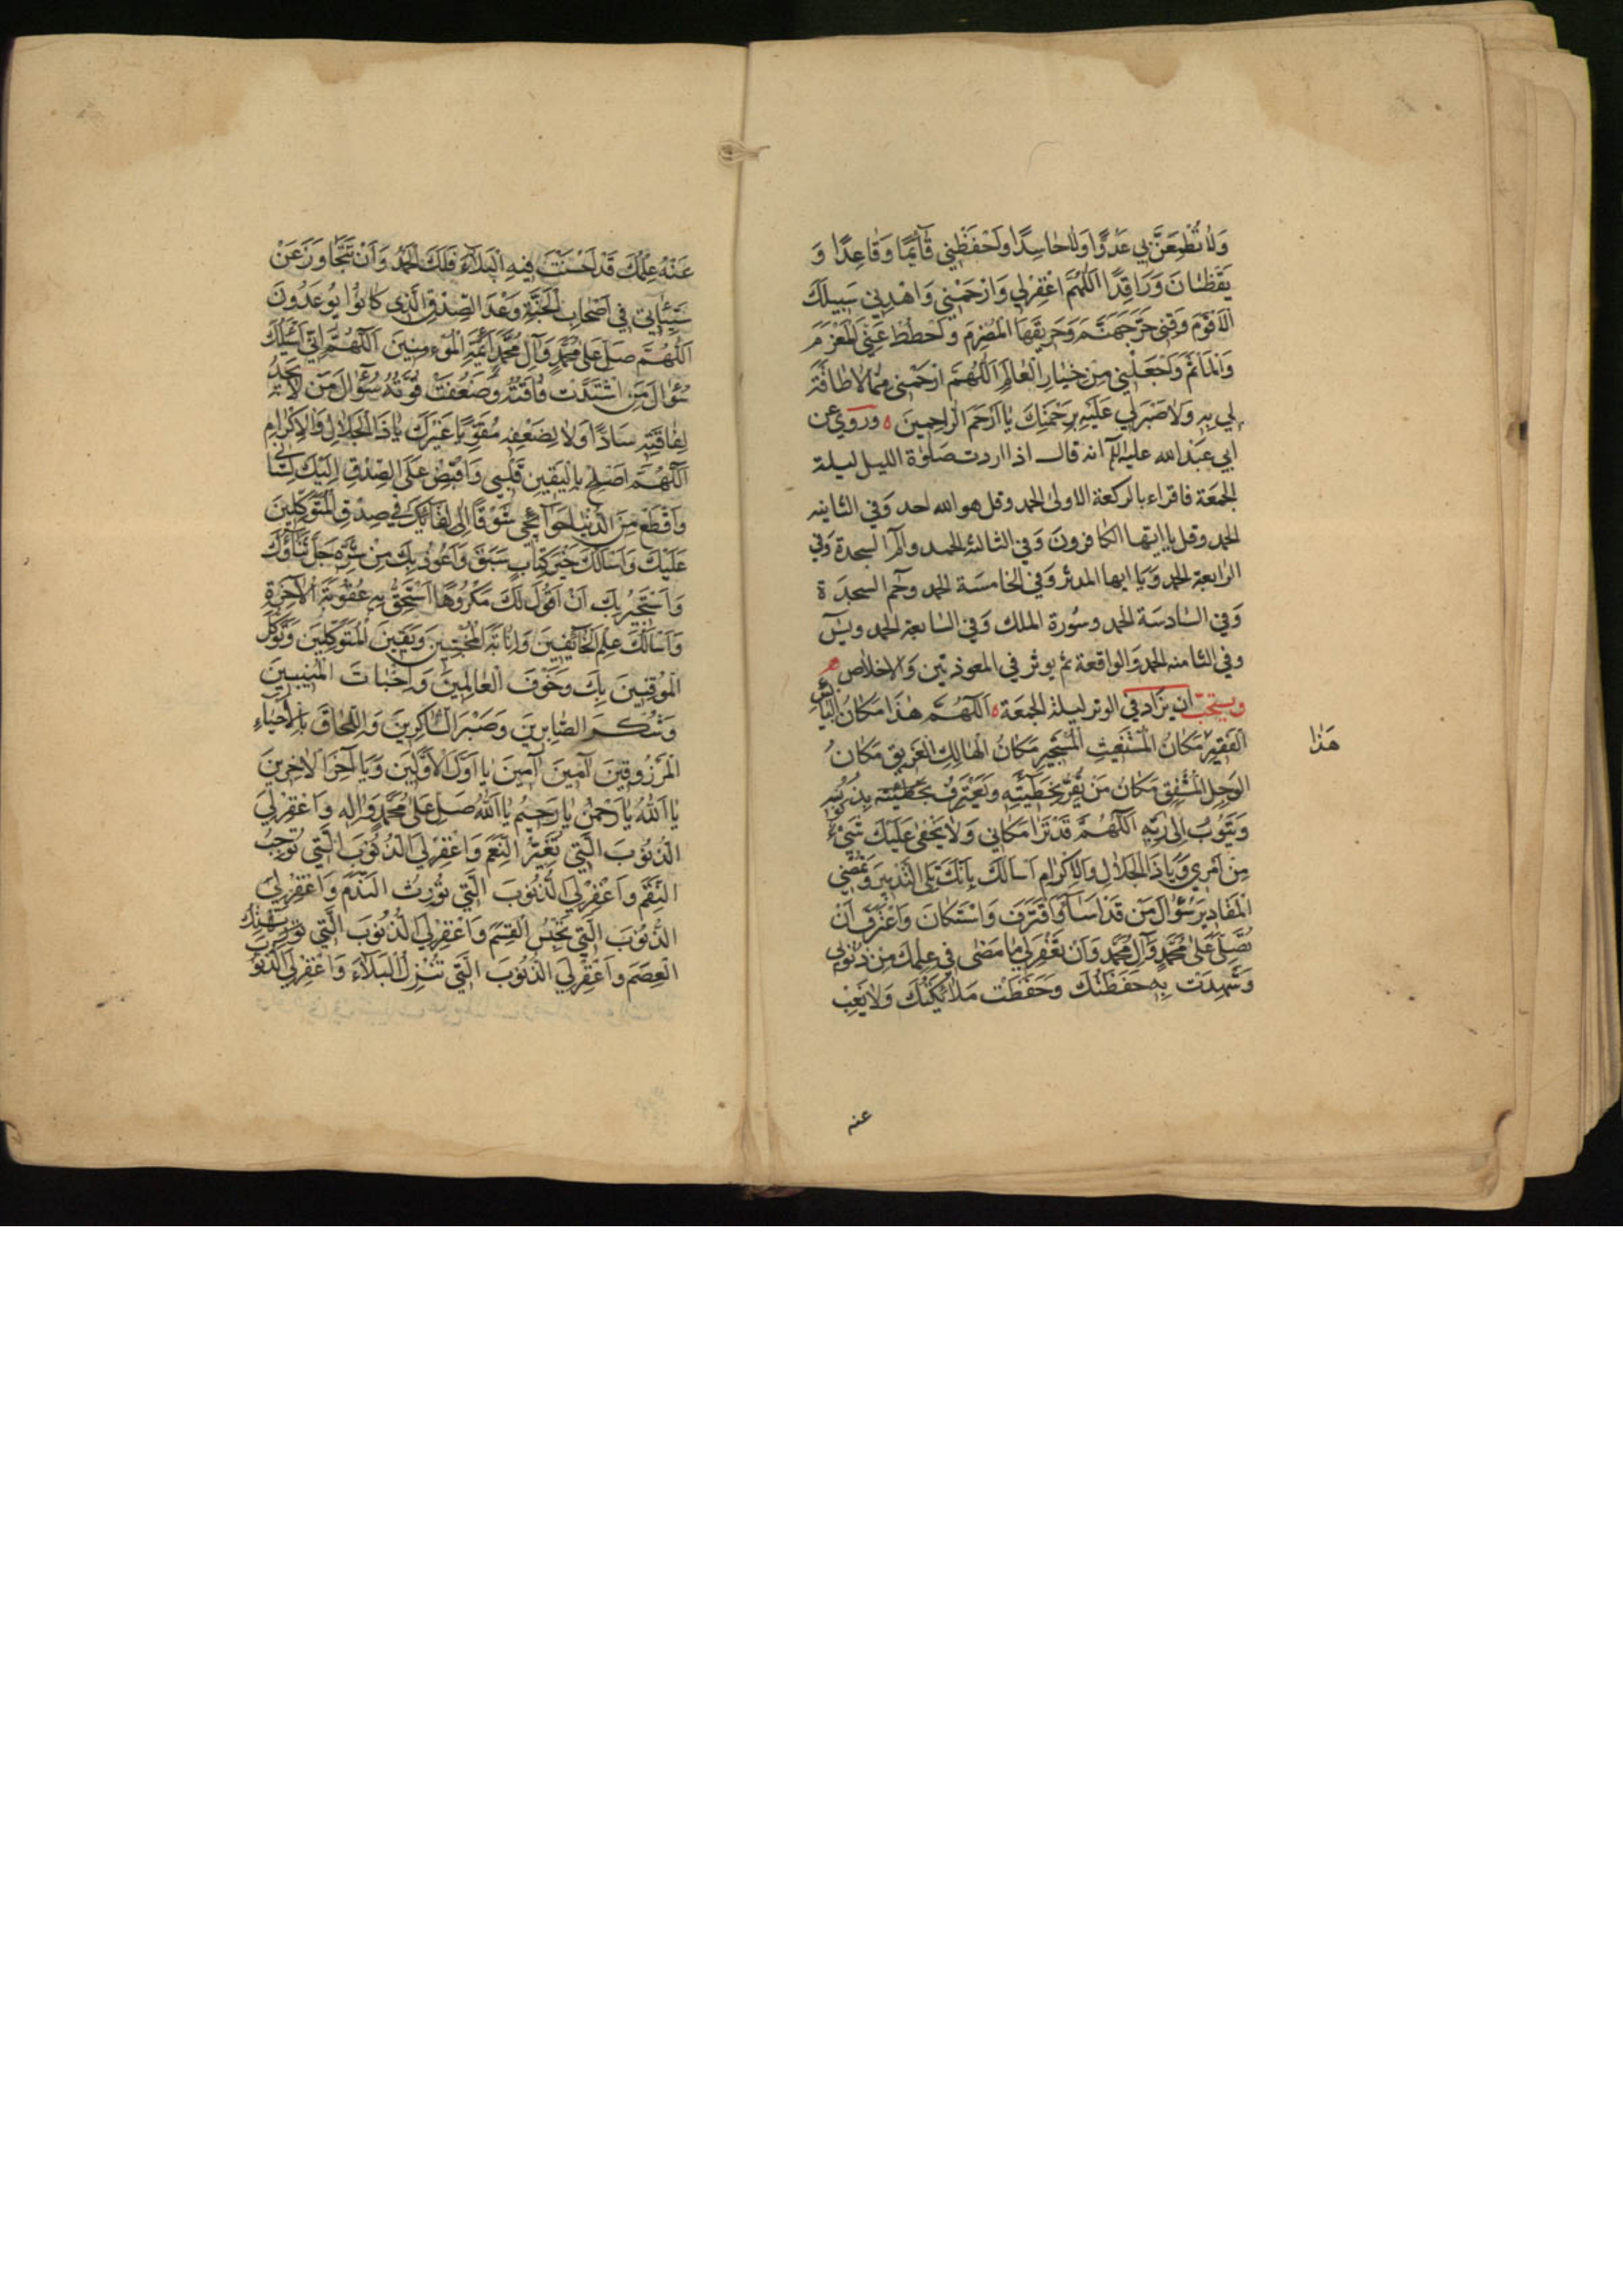 وَلاٰ تُطْمِعَنَّ بِي عَدُوًّا وَلاٰ حٰاسِدًا وَاحْفَظْنِي قٰآئِمًا وَقٰاعِدًا وَ
يَقْظٰانَ وَرٰاقِدًا اَللّٰهُمَّ اغْفِرْلِي وَارْحَمْنِي وَاهْدِنِي سَبِيلَكَ
الْاَقْوَمَ وَقِنِي حَرَّ جَهَنَّمَ وَحَرِيقَهَا الْمُضْرَمَ وَاحْطُطْ عَنِّي الْمَغْرَمَ
وَالْمَاْثَمَ وَاجْعَلْنِي مِنْ خِيٰارِ الْعٰالَمِ اَللّٰهُمَّ ارْحَمْنِي مِمّٰا لاٰ طٰاقَةَ
لِي بِهِ وَلاٰ صَبْرَ لِي عَلَيْهِ بِرَحْمَتِكَ يٰا اَرْحَمَ الرّٰاحِمِينَ ه وروي عن
ابي عَبْد الله عليه السلام انه قال اذا اردت صَلوٰة الليل ليلة
الجمَعة فاقراء بالركعة الاولىٰ الحمد وقل هو الله احد وَفي الثانيه
الحمد وقل يا ايها الكافرونَ وَفي الثالثه الحمد والٓمٓ السجدة وَفي
الرابعة الحمد وَيا ايها المدثر وَفي الخامسَة الحمد وحٓم السجدَة
وَفي السٰادسَة الحمد وسُورة الملك وَفي السٰابعة الحمد ويسٓ
وفي الثامنه الحمد وَالواقعة ثم يوثر في المعوذتين وَالاخلاص
ويستحبّ ان يزاد في الوتر ليلة الجمَعة ه اَللّٰهُمَّ هٰذَا مَكٰانُ الْبٰائِسِ
الْفَقِيرِ مَكٰانُ الْمُسْتَغِيثِ الْمُسْتَجِيرِ مَكٰانُ الْهٰالِكِ الْغَرِيقِ مَكٰانُ
هَذٰا
الْوَجِلِ الْمُشْفِقِ مَكٰانُ مَنْ يُقِرُّ بِخَطِيٓئَتِهِ وَيَعْتَرِفُ بِذُنُوبِهِ
وَيَتُوبُ اِلىٰ رَبِّهِ اَللّٰهُمَّ قَدْ تَرٰا مَكٰانِي وَلاٰ يَخْفىٰ عَلَيْكَ شَيْءٌ
مِنْ اَمْرِي وَيٰا ذَا الْجَلاٰلِ وَالْاِكْرٰامِ اَسْاَلُكَ بِاَنَّكَ تَلِي التَّدْبِيرَ وَتُمْضِي
الْمَقٰادِيرَ سُؤٰالَ مَنْ قَدْ اَسٰآءَ وَاقْتَرَفَ وَاسْتَكٰانَ وَاعْتَرَفَ اَنْ
تُصَلِّيَ عَلىٰ مُحَمَّدٍ وَآلِ مُحَمَّدٍ وَاَنْ تَغْفِرَ لِي مٰا مَضىٰ فِي عِلْمِكَ مِنْ ذُنُوبِي
وَشَهِدَتْ بِهِ حَفَظَتُكَ وَحَفِظَتْ مَلاٰئِكَتُكَ وَلاٰ يَغِبْ
عنه
عَنْهُ عِلْمُكَ قَدْ اَحْسَنْتَ فِيهِ الْبَلآٰءَ فَلَكَ الْحَمْدُ وَاَنْ تَتَجٰاوَزَ عَنْ
سَيِّئٰاتِي فِي اَصْحٰابِ الْجَنَّةِ وَعْدَ الصِّدْقِ الَّذِي كٰانُوا يُوعَدُونَ
اَللّٰهُمَّ صَلِّ عَلىٰ مُحَمَّدٍ وَآلِ مُحَمَّدٍ اَئِمَّةِ الْمُؤْمِنِينَ اَللّٰهُمَّ اِنِّي اَسْئَلُكَ
سُؤٰالَ مَنِ اشْتَدَّتْ فٰاقَتُهُ وَضَعُفَتْ قُوَّتُهُ سُؤٰالَ مَنْ لاٰ يَجِدُ
لِفٰاقَتِهِ سَادًّا وَلاٰ لِضَعْفِهِ مُقَوِّيًا غَيْرَكَ يٰا ذَا الْجَلاٰلِ وَالْاِكْرٰامِ
اَللّٰهُمَّ اَصْلِحْ بِالْيَقِينِ قَلْبِي وَاقْبِضْ عَلَى الصِّدْقِ اِلَيْكَ لِسٰانِي
وَاقْطَعْ مِنَ الدُّنْيٰا حَوٰآئِجِي شَوْقًا اِلىٰ لِقٰآئِكَ فِي صِدْقِ الْمُتَوَكِّلِينَ
عَلَيْكَ وَاَسْاَلُكَ خَيْرَ كِتٰابٍ سَبَقَ وَاَعُوذُ بِكَ مِنْ شَرِّهِ جَلَّ ثَنٰاؤُكَ
وَاَسْتَجِيرُ بِكَ اَنْ اَقُولَ لَكَ مَكْرُوهًا اَسْتَحِقُّ بِهِ عُقُوبَةَ الْآخِرَةِ
وَاَسْاَلُكَ عِلْمَ الْخٰآئِفِينَ وَاِنٰابَةَ الْمُخْبِتِينَ وَيَقِينَ الْمُتَوَكِّلِينَ وَتَوَكُّلَ
الْمُوقِنِينَ بِكَ وَخَوْفَ الْعٰالِمِينَ وَاِخْبٰاتَ الْمُنِيبِينَ
وَشُكْرَ الصّٰابِرِينَ وَصَبْرَ الشّٰاكِرِينَ وَاللِّحٰاقَ بِالْاَحْيٰاءِ
الْمَرْزُوقِينَ آمِينَ آمِينَ يٰا اَوَّلَ الْاَوَّلِينَ وَيٰا آخِرَ الْآخِرِينَ
يٰا اَللّٰهُ يٰا رَحْمٰنُ يٰا رَحِيمُ يٰا اَللّٰهُ صَلِّ عَلىٰ مُحَمَّدٍ وَالِهِ وَاغْفِرْ لِيَ
الذُّنُوبَ الَّتِي تُغَيِّرُ النِّعَمَ وَاغْفِرْ لِيَ الذُّنُوبَ الَّتِي تُوجِبُ
النِّقَمَ وَاغْفِرْ لِيَ الذُّنُوبَ الَّتِي تُورِثُ النَّدَمَ وَاغْفِرْ لِيَ
الذُّنُوبَ الَّتِي تَحْبِسُ الْقِسَمَ وَاغْفِرْ لِيَ الذُّنُوبَ الَّتِي تَهْتِكُ
الْعِصَمَ وَاغْفِرْ لِيَ الذُّنُوبَ الَّتِي تُنْزِلُ الْبَلآٰءَ وَاغْفِرْ لِيَ الذُّنُوبَ